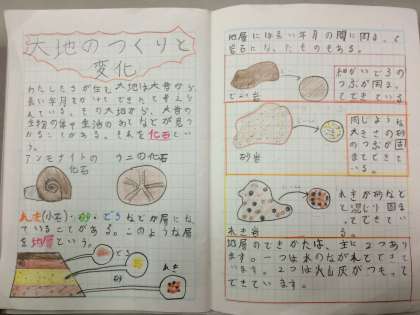 大地のつくりと
変化
わたしたちが住む大地は大昔から
長い年月をかけてできたと考えら
れている。その大地から、大昔の
生物の体や生活のあとなどが見つ
かることがある。それを化石とい
う。
アンモナイトの
化石
ウニの化石
れき(小石)・砂・どろなどが層にな
っていることがある。このような層
を地層という。
どろ
砂
れき
地層には長い年月の間に固まって
岩石になったものもある。
でい岩
細かいどろの
つぶが固まっ
てできている
砂岩
同じような
大きさの砂
のつぶが固
まってできて
いる
れき岩
れきが砂など
と混じり固ま
ってできてい
る
地層のでき方は、主に2つあり
ます。一つは水のながれでできて
います。2つは火山灰がつもって
できています。